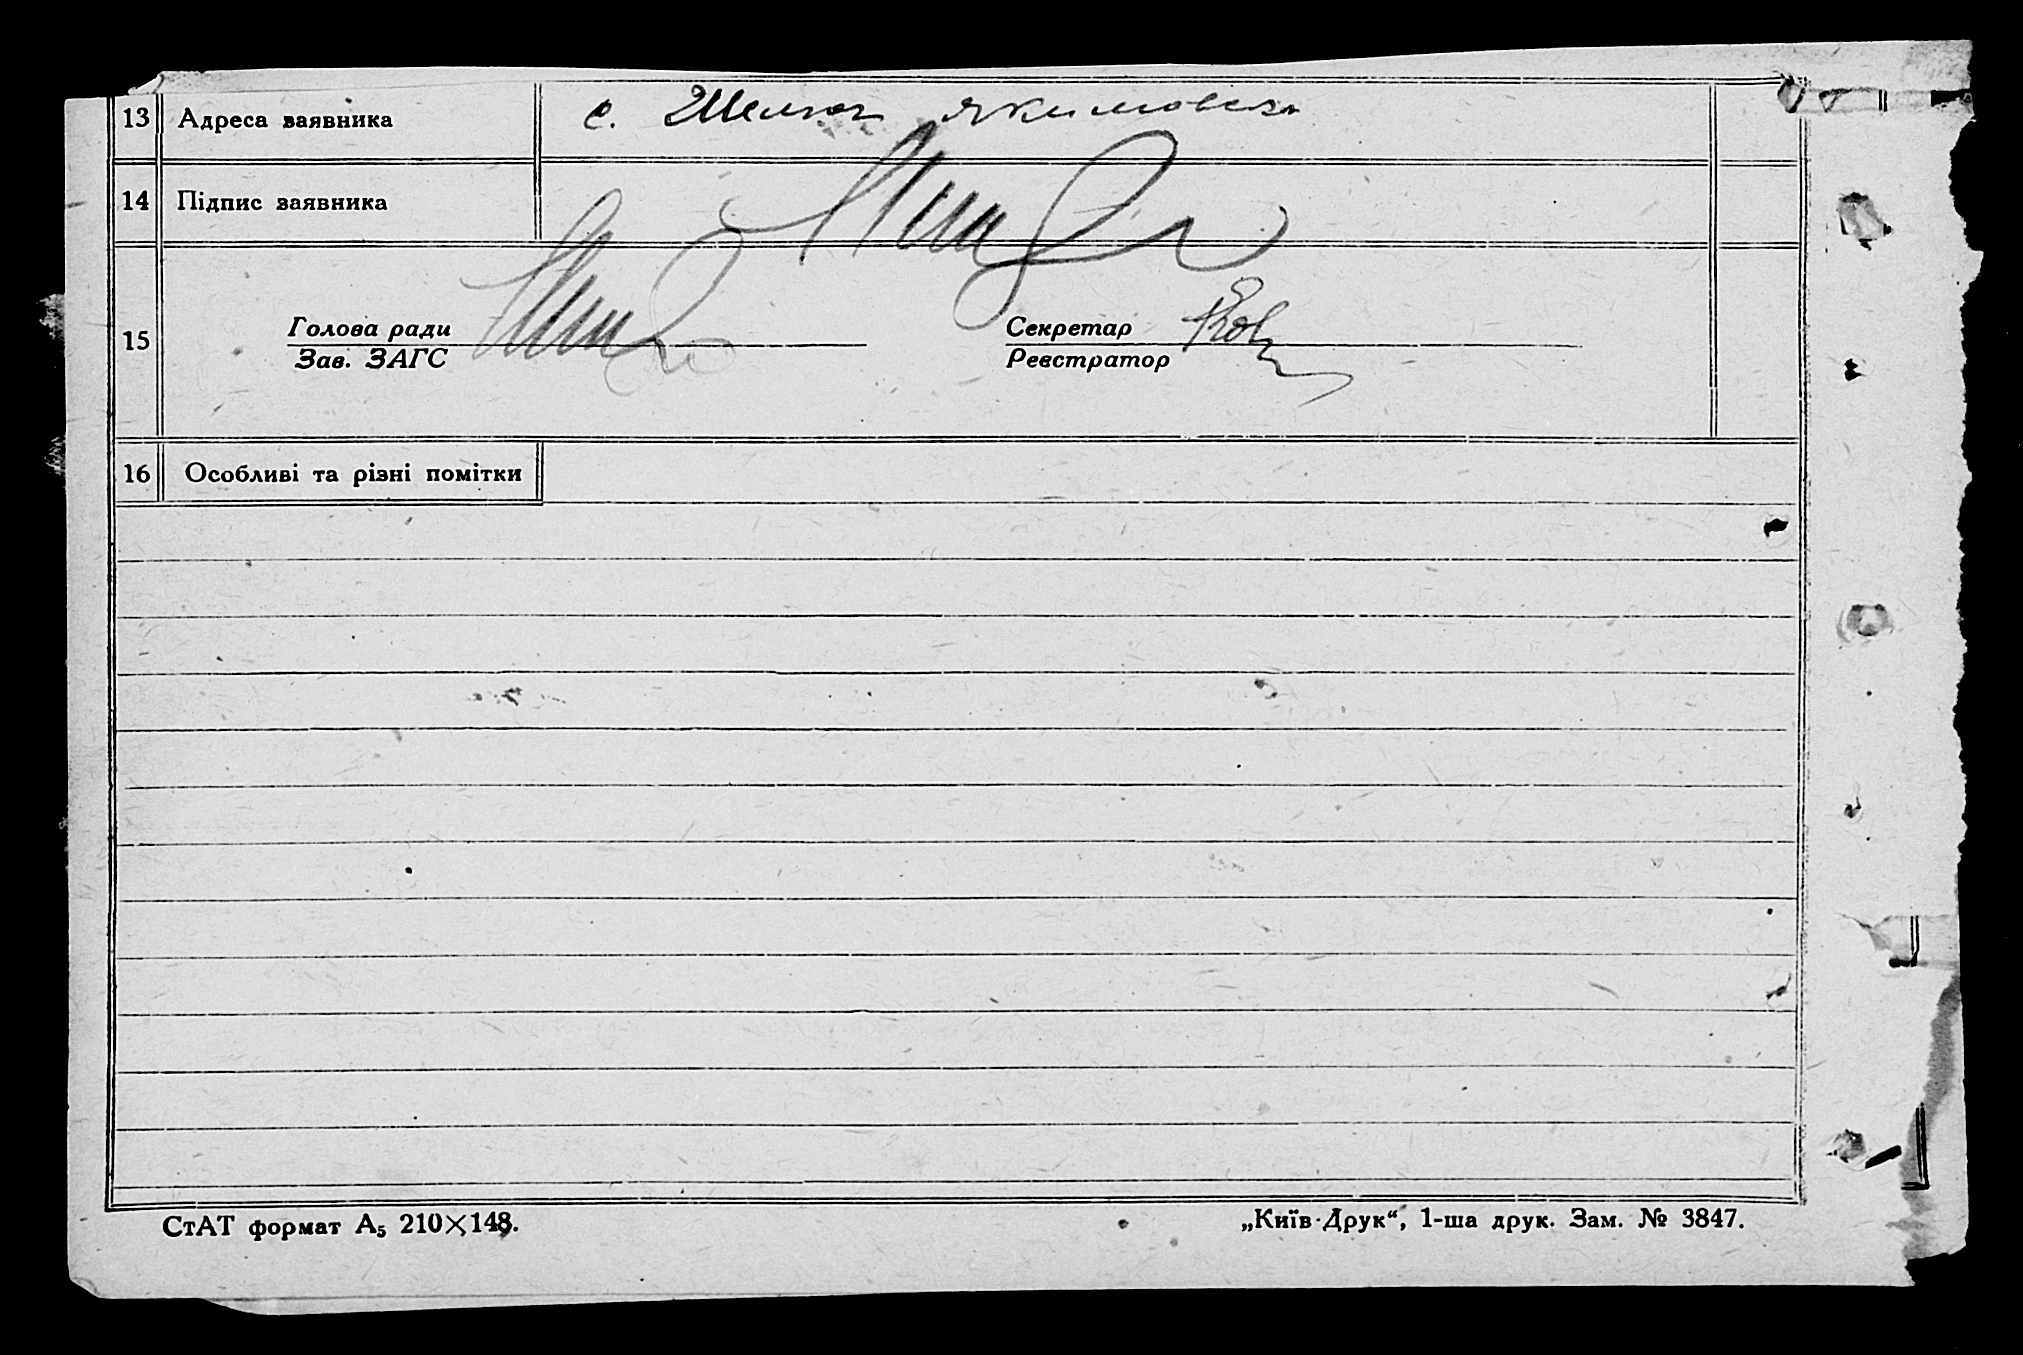 13 Адреса заявника с.
14 Підпис заявника
15 Голова ради Секретар
Зав. ЗАГС Реєстратор
16 Особливі та різні помітки
СтАТ формат А₅ 210×148.
„Київ-Друк“, 1-ша друк. Зам. № 3847.